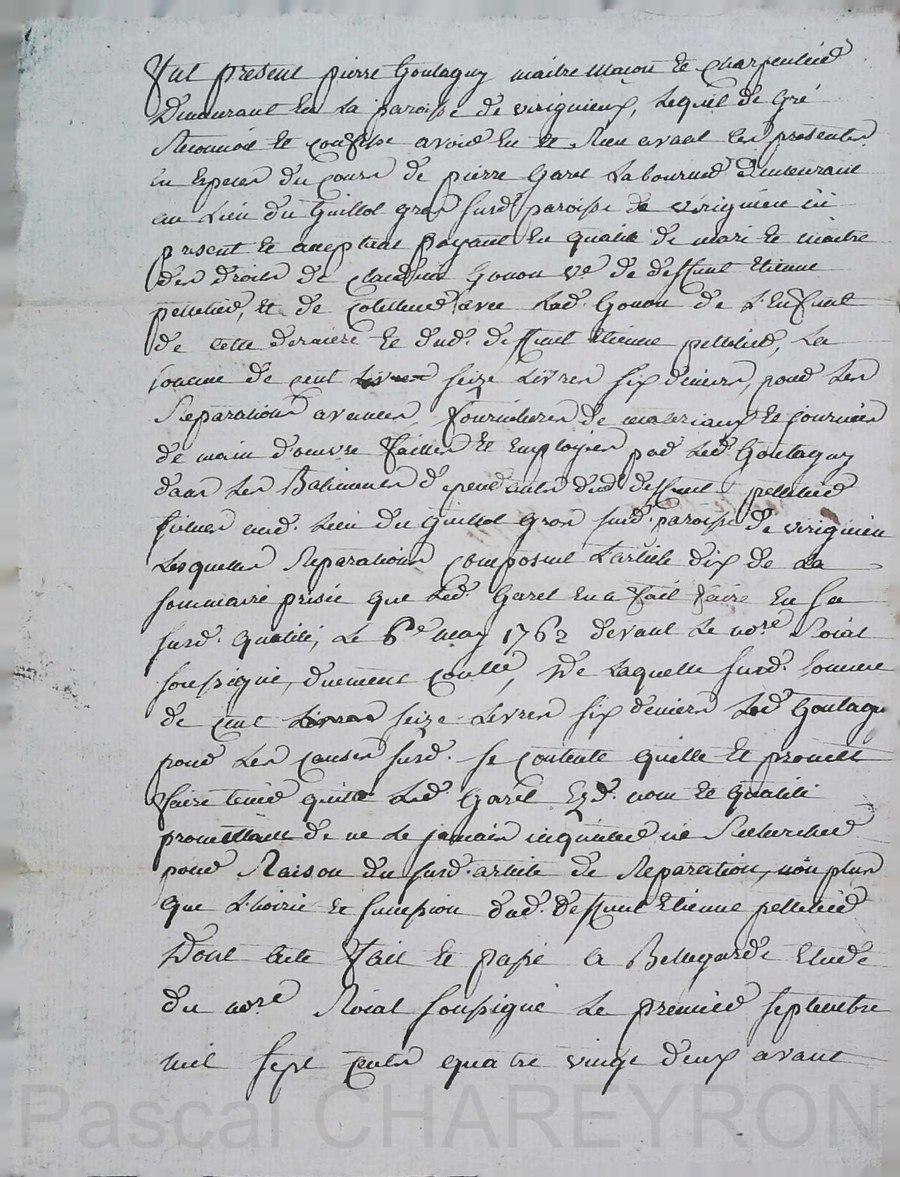 Fut present pierre Goutaguy maitre macon et charpentier
Demeurant en la paroisse de virignieux, lequel de gré
Reconnoit et confesse avoir eu et Reçu avant les presentes
en especes du cours de pierre Garel Laboureur demeurant
au Lieu du Guillot gros susd. paroisse de virignieu ici
present et acceptant payant en qualité de mari et maitre
des droits de Gonon ve. de deffunt Etienne
pelletier, et de avec lad. Gonon de L'Enfant
de cette derniere et dud. deffunt Etienne pelletier, La
somme de cent seize Livres six deniers, pour Les
Reparations avancées, fournitures de materiaux et journées
de main d'œuvre faittes et Employées par led. Goutaguy
dans Les Batiments dependants dud. deffunt pelletier
situés aud. Lieu du Guillot gros susd. paroisse de virignieu
Lesquelles Reparations composent L'article dix de La
sommaire prisée que led. Garel en a fait faire En sa
susd. qualité, Le 6e. may 1762 devant Le nore. Roial
soussigné, duement De Laquelle susd. somme
de cent seize Livres six deniers led. Goutaguy
pour Les causes susd. se contente quitte et promet
faire tenir quitte led. Garel Esd. nom et qualité
promettant de ne Le jamais inquieter ni Rechercher
pour Raison du susd. article de Reparation, non plus
que L'hoirie et dud. deffunt Etienne pelletier
Dont acte fait et passé a Bellegarde Etude
du nore. Roial soussigné Le premier septembre
mil sept cents quatre vingt deux avant
Pascal CHAREYRON